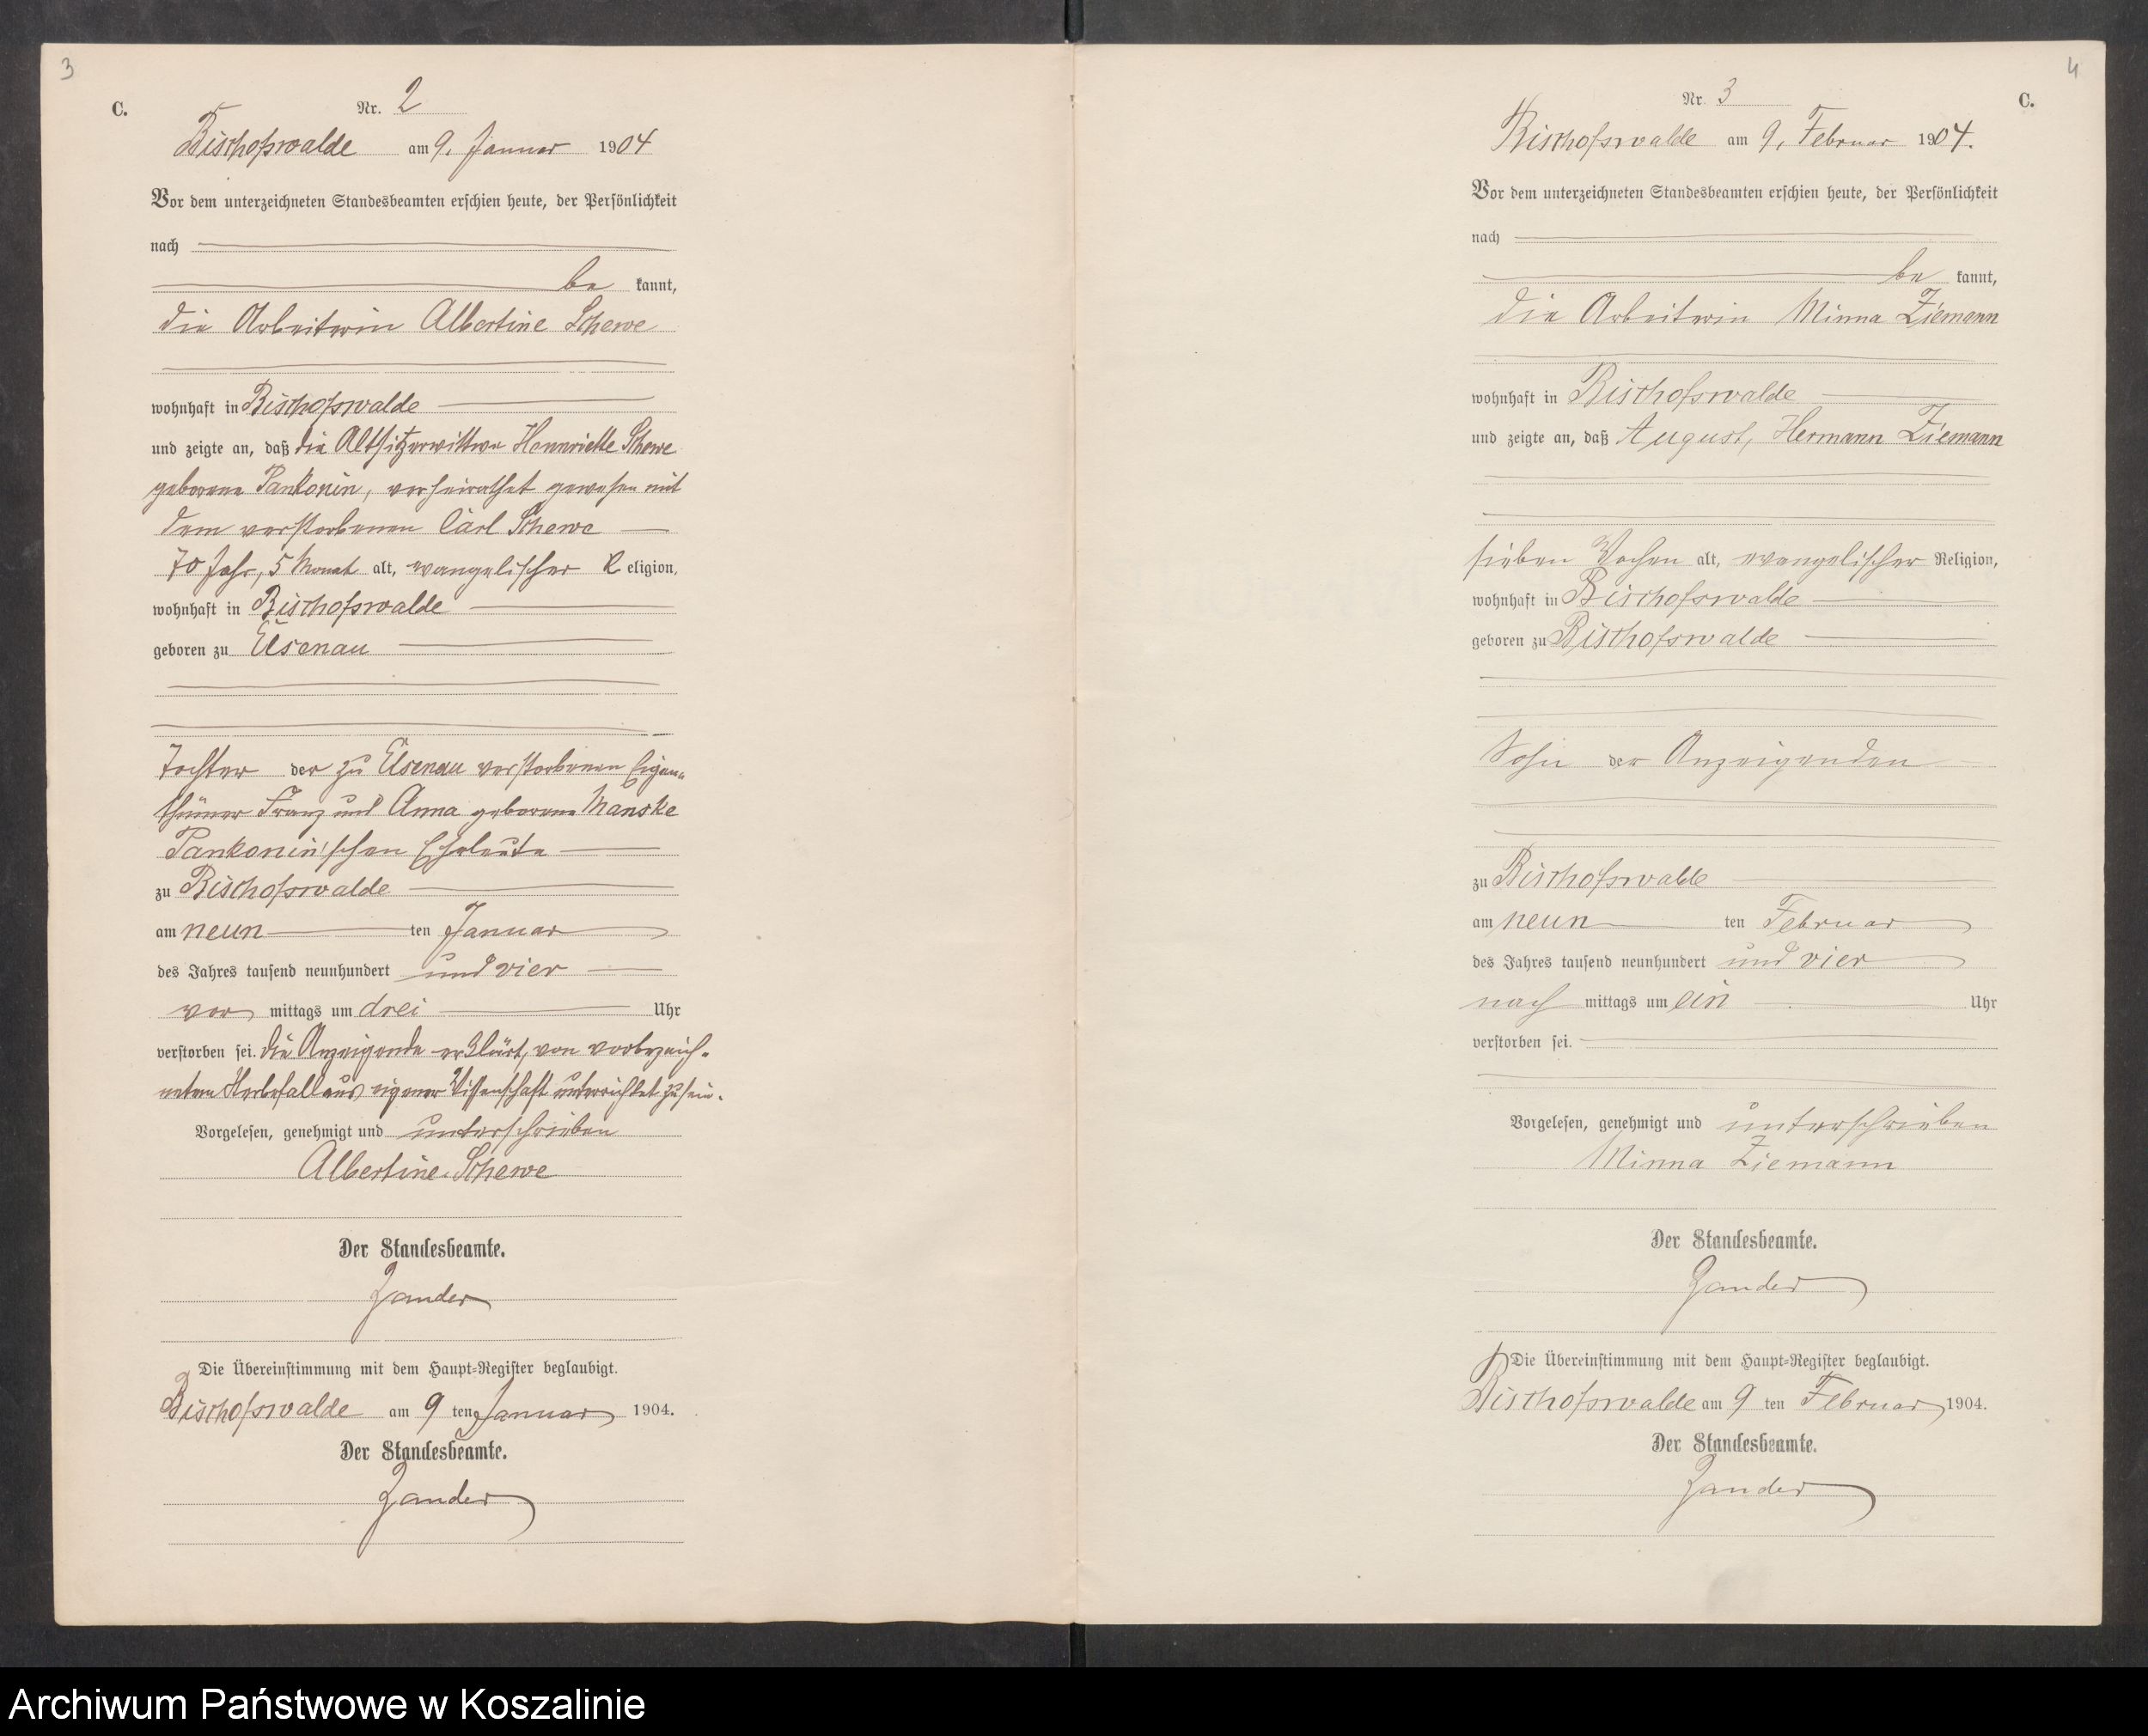 3
C.
Nr. 2
Bischofswalde am 9. Januar 1904
Vor dem unterzeichneten Standesbeamten erschien heute, der Persönlichkeit
nach
be kannt,
die Arbeiterin Albertine Schewe
wohnhaft in Bischofswalde
und zeigte an, daß die Altsitzerwittwe Hennriette Schewe
geborene Pankonin, verheirathet gewesen mit
dem verstorbenen Carl Schewe
70 Jahr, 5 Monat alt, evangelischer Religion,
wohnhaft in Bischofswalde
geboren zu Elsenau
Tochter der zu Elsenau verstorbenen Eigen-
thümer Franz und Anna geborene Manske
Pankonin'schen Eheleute
zu Bischofswalde
am neun ten Januar
des Jahres tausend neunhundert und vier
vor mittags um drei Uhr
verstorben sei. Die Anzeigende erklärt, von vorbezeich-
netem Sterbefall aus eigener Wissenschaft unterrichtet zu sein.
Vorgelesen, genehmigt und unterschrieben
Albertine Schewe
Der Standesbeamte.
Zander
Die Übereinstimmung mit dem Haupt-Register beglaubigt.
Bischofswalde am 9 ten Januar 1904.
Der Standesbeamte.
Zander
4
Nr. 3
C.
Bischofswalde am 9. Februar 1904.
Vor dem unterzeichneten Standesbeamten erschien heute, der Persönlichkeit
nach
be kannt,
die Arbeiterin Minna Ziemann
wohnhaft in Bischofswalde
und zeigte an, daß August, Hermann Ziemann
sieben Wochen alt, evangelischer Religion,
wohnhaft in Bischofswalde
geboren zu Bischofswalde
Sohn der Anzeigenden
zu Bischofswalde
am neun ten Februar
des Jahres tausend neunhundert und vier
nach mittags um ein Uhr
verstorben sei.
Vorgelesen, genehmigt und unterschrieben
Minna Ziemann
Der Standesbeamte.
Zander
Die Übereinstimmung mit dem Haupt-Register beglaubigt.
Bischofswalde am 9 ten Februar 1904.
Der Standesbeamte.
Zander
Archiwum Państwowe w Koszalinie